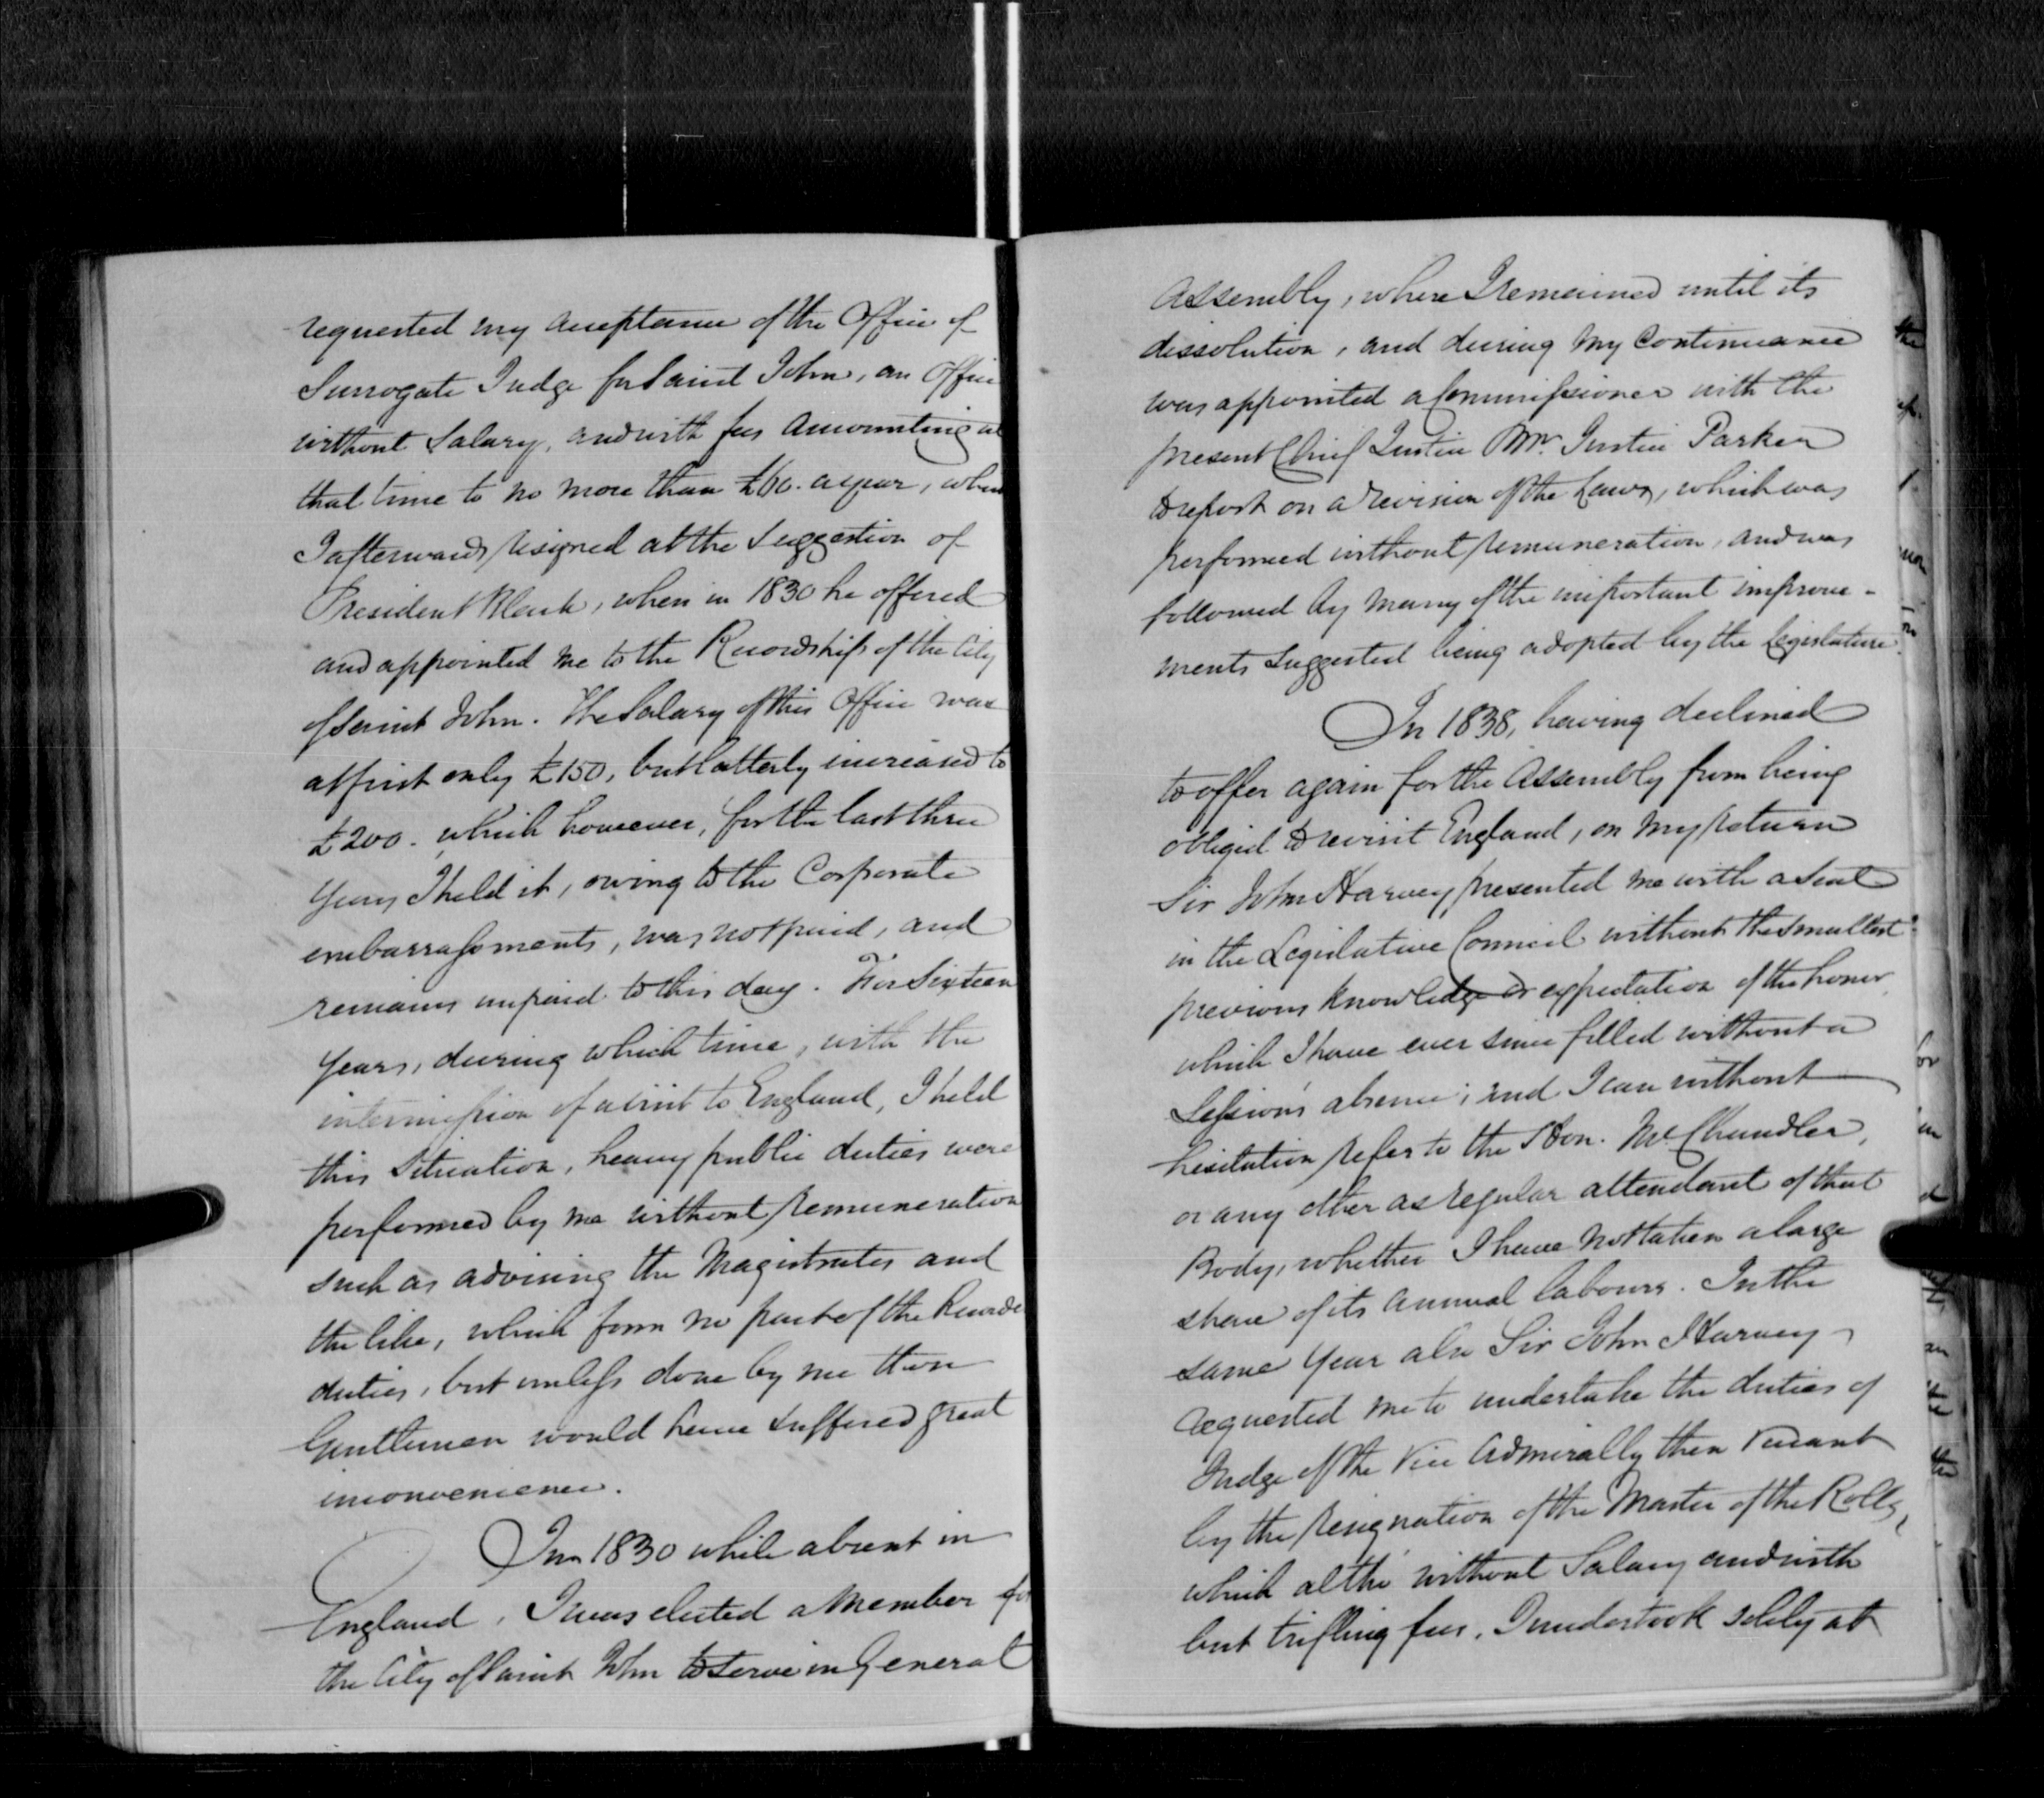 requested my acceptance of the Office of
Surrogate Judge for Saint John, an Office
without Salary, and with fees amounting at
that time to no more than £60. a year, when
I afterwards resigned at the Suggestion of
President Black, when in 1830 he offered
and appointed me to the Recordship of the City
of Saint John. The Salary of this Office was
at first only £150, but latterly increased to
£200. which however, for the last three
years I held it, owing to the Corporate
embarrassments, was not paid, and
remains unpaid to this day. For Sixteen
years, during which time, with the
intermission of a visit to England, I held
this Situation, heavy public duties were
performed by me without remuneration
such as advising the Magistrates and
the like, which form no part of the
duties, but unless done by me these
Gentlemen would have suffered great
inconvenience.
In 1830 while absent in
England, I was elected a Member for
the City of Saint John to serve in General
Assembly, where I remained until its
dissolution, and during my Continuance
was appointed a Commissioner with the
present Chief Justice Mr. Justice Parker
to report on a revision of the Laws, which was
performed without remuneration, and was
followed by many of the important improve-
ments suggested being adopted by the Legislature.
In 1838, having declined
to offer again for the Assembly from being
obliged to revisit England, on my return
Sir John Harvey presented me with a Seat
in the Legislative Council without the smallest
previous knowledge or expectation of the honor
which I have ever since filled without a
Session's absence; and I can without
hesitation refer to the Hon. Mr. Chandler,
or any other as regular attendant of that
Body, whether I have not taken a large
share of its annual labours. In the
same year also Sir John Harvey
requested me to undertake the duties of
Judge of the Vice Admiralty then vacant
by the resignation of the Master of the Rolls,
which altho' without Salary and with
but trifling fees, I undertook solely at